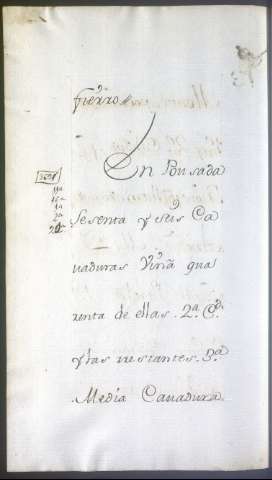 fierro
En Pousada
Sesenta y seis Ca
vaduras Viña qua
renta de ellas. 2.ª C.ᵈ
y las restantes. 3.ª
Media Cavadura